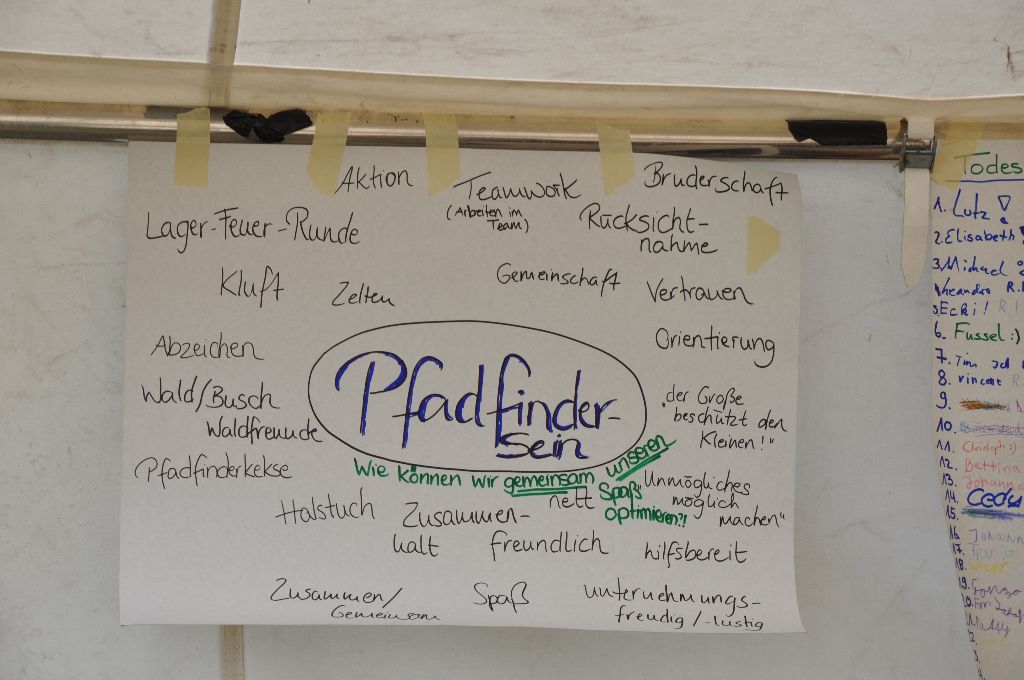 Aktion
Teamwork
(Arbeiten im
Team)
Bruderschaft
Lager-Feuer-Runde
Rücksicht-
nahme
Kluft
Zelten
Gemeinschaft
Vertrauen
Abzeichen
Orientierung
Wald/Busch
Waldfreunde
Pfadfinder-
sein
„der Große
beschützt den
Kleinen!"
Pfadfinderkekse
Wie können wir gemeinsam unseren
Spaß
optimieren?!
nett
"Unmögliches
möglich
machen"
Halstuch
Zusammen-
halt
freundlich
hilfsbereit
Zusammen/
Gemeinsam
Spaß
unternehmungs-
freudig/-lustig
Todes
1. Lutz
2. Elisabeth
3. Michael
Ecki!
6. Fussel :)
7. Tim
8. Vincent
9.
10.
11. Christoph :)
12. Bettina
13. Johann
14. Cedu
15.
16. Johann
17.
18.
19.
20.
21. Patty